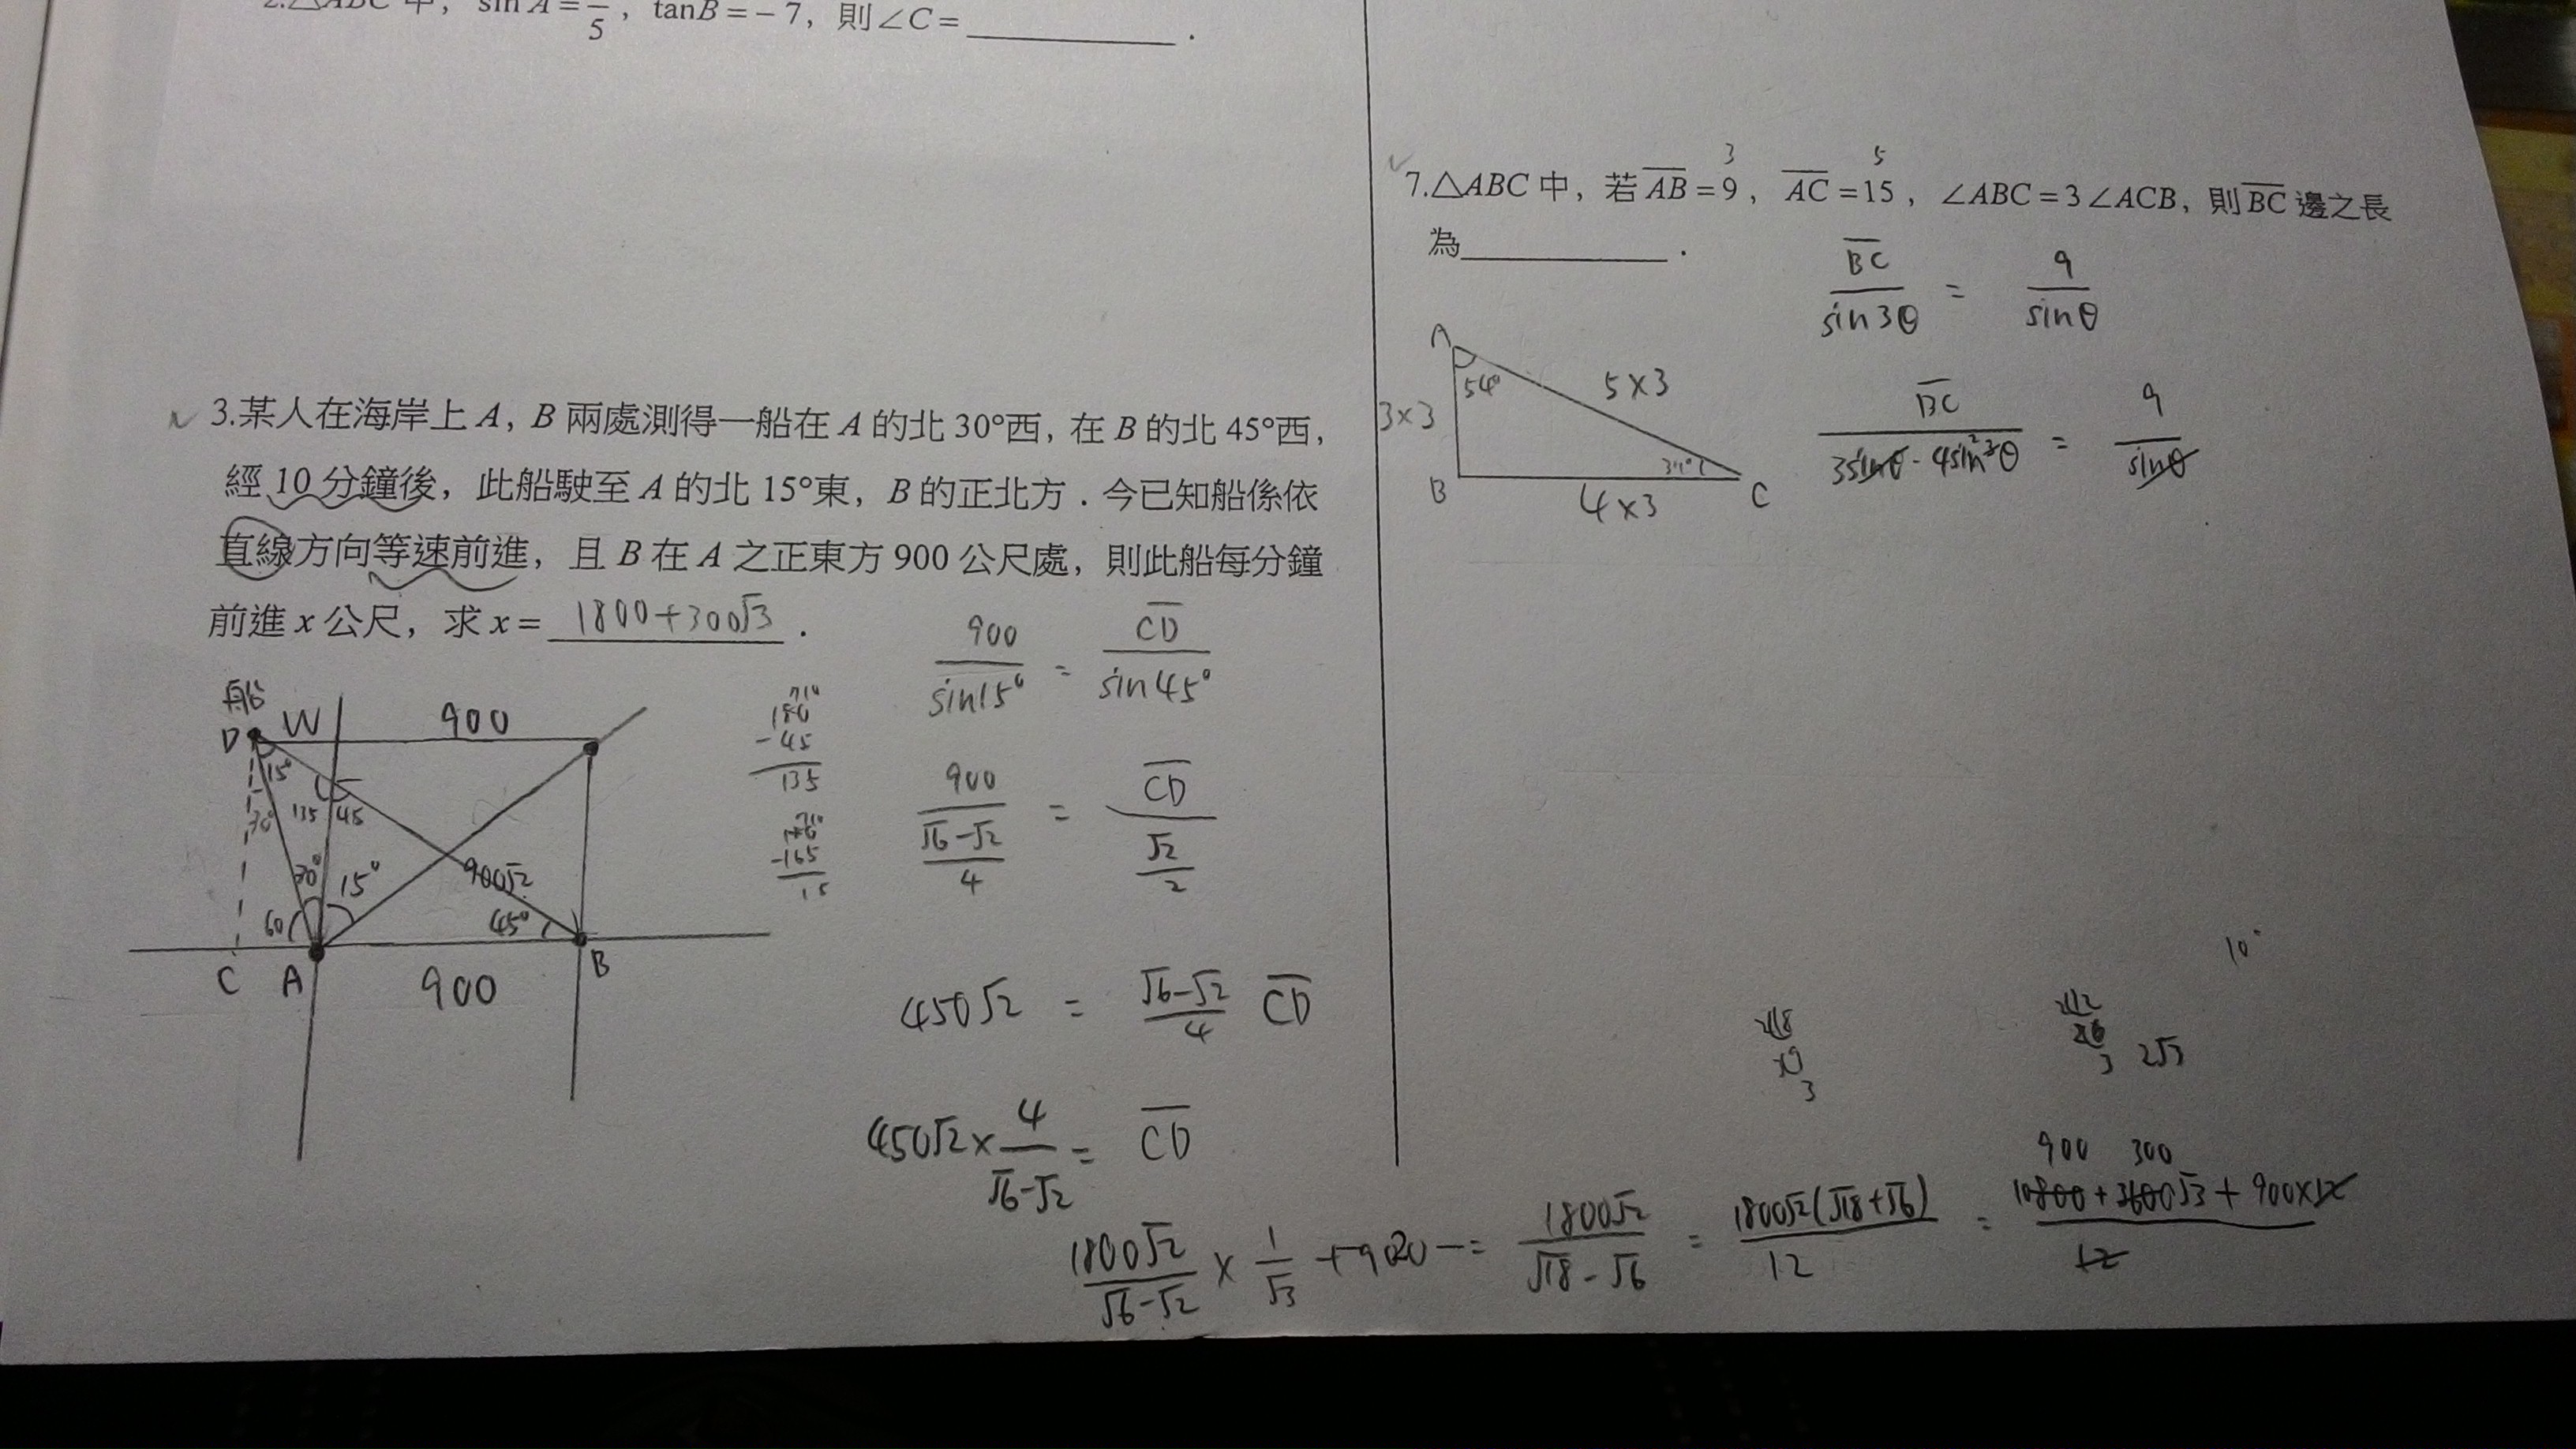 2.△ABC 中, sin A = /5, tanB = − 7, 則∠C = ________ .
3.某人在海岸上 A, B 兩處測得一船在 A 的北 30°西, 在 B 的北 45°西,
經 10 分鐘後, 此船駛至 A 的北 15°東, B 的正北方 . 今已知船係依
直線方向等速前進, 且 B 在 A 之正東方 900 公尺處, 則此船每分鐘
前進 x 公尺, 求 x = 1800+300√3 .
船
D W 900
15°
30° 135 45
30° 15° 900√2
60 45°
C A 900 B
180
-45
135
-165
15
900/sin15° = CD/sin45°
900/((√6-√2)/4) = CD/(√2/2)
450√2 = (√6-√2)/4 CD
450√2 × 4/(√6-√2) = CD
1800√2/(√6-√2) × 1/√3 + 900 = 1800√2/(√18-√6) = 1800√2(√18+√6)/12 = (10800+3600√3+900×12)/12
900 300
3 5
7.△ABC 中, 若 AB = 9, AC = 15, ∠ABC = 3∠ACB, 則 BC 邊之長
為________ .
BC/sin3θ = 9/sinθ
BC/(3sinθ-4sin³θ) = 9/sinθ
A
54° 5×3
3×3
B 4×3 C
3
3 2√3
10°